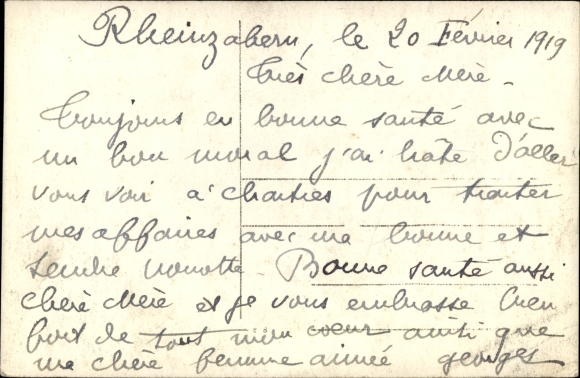 Rheinzabern, le 20 Février 1919
Très chère Mère.
Toujours en bonne santé avec
un bon moral j'ai hâte d'aller
vous voir à Chartres pour traiter
mes affaires avec ma bonne et
tendre Nonotte. Bonne santé aussi
chère Mère et je vous embrasse bien
fort de tout mon coeur ainsi que
ma chère femme aimée georges